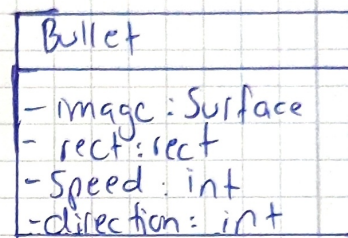 Bullet
- image : Surface
- rect : rect
- Speed : int
- direction : int